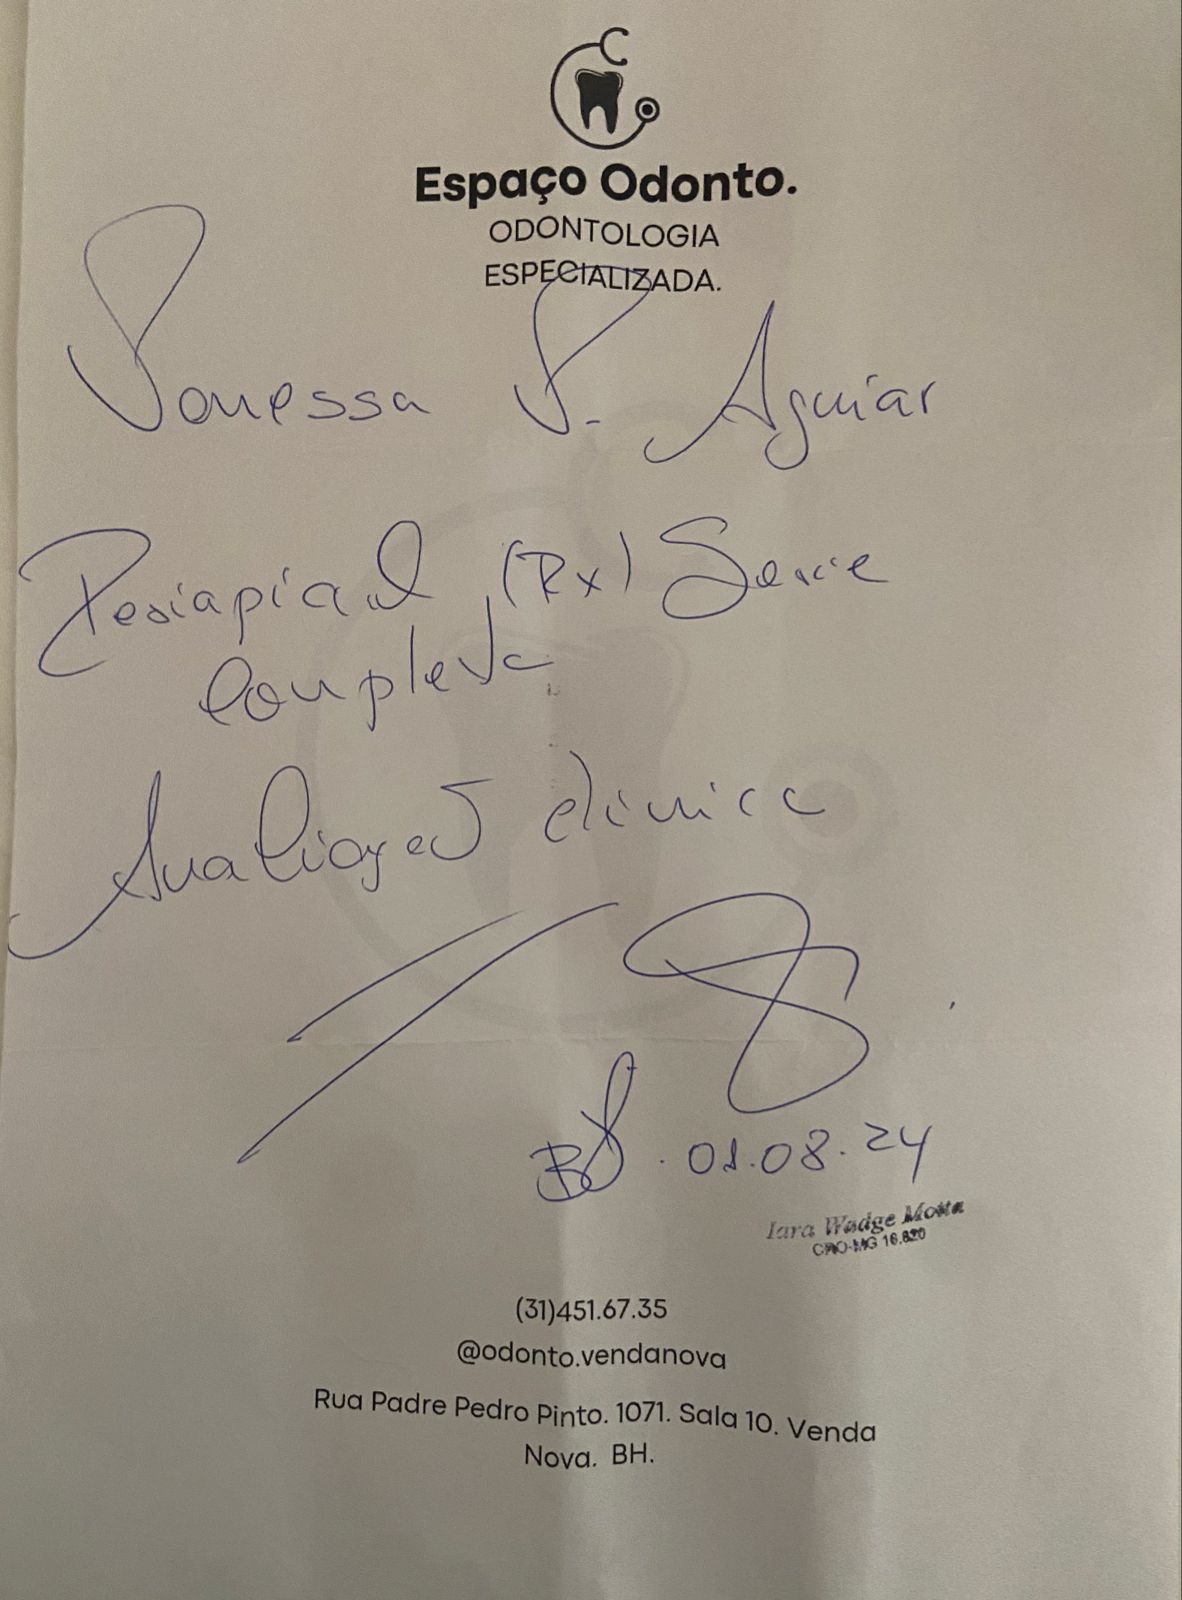 Espaço Odonto.
ODONTOLOGIA
ESPECIALIZADA.
Vanessa P. Aguiar
Periapical (Rx) Serie
Completa
Avaliação clinica
BH. 01.08.24
Iara Wadge Motta
CRO-MG 16.820
(31)451.67.35
@odonto.vendanova
Rua Padre Pedro Pinto. 1071. Sala 10. Venda
Nova. BH.